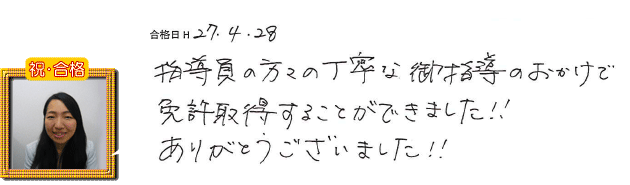 合格日 H 27.4.28
祝・合格
指導員の方々の丁寧な御指導のおかげで
免許取得することができました!!
ありがとうございました!!